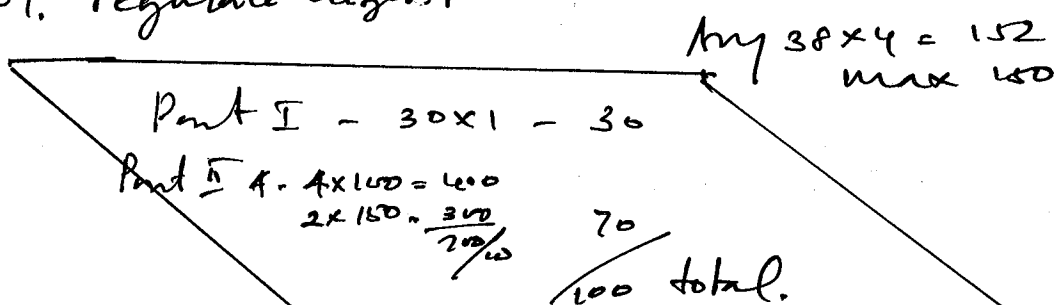 Any 38×4 = 152
max 150
Part I - 30×1 - 30
Part II A. 4×100 = 400
2×150 = 300
700/10
70
100 total.